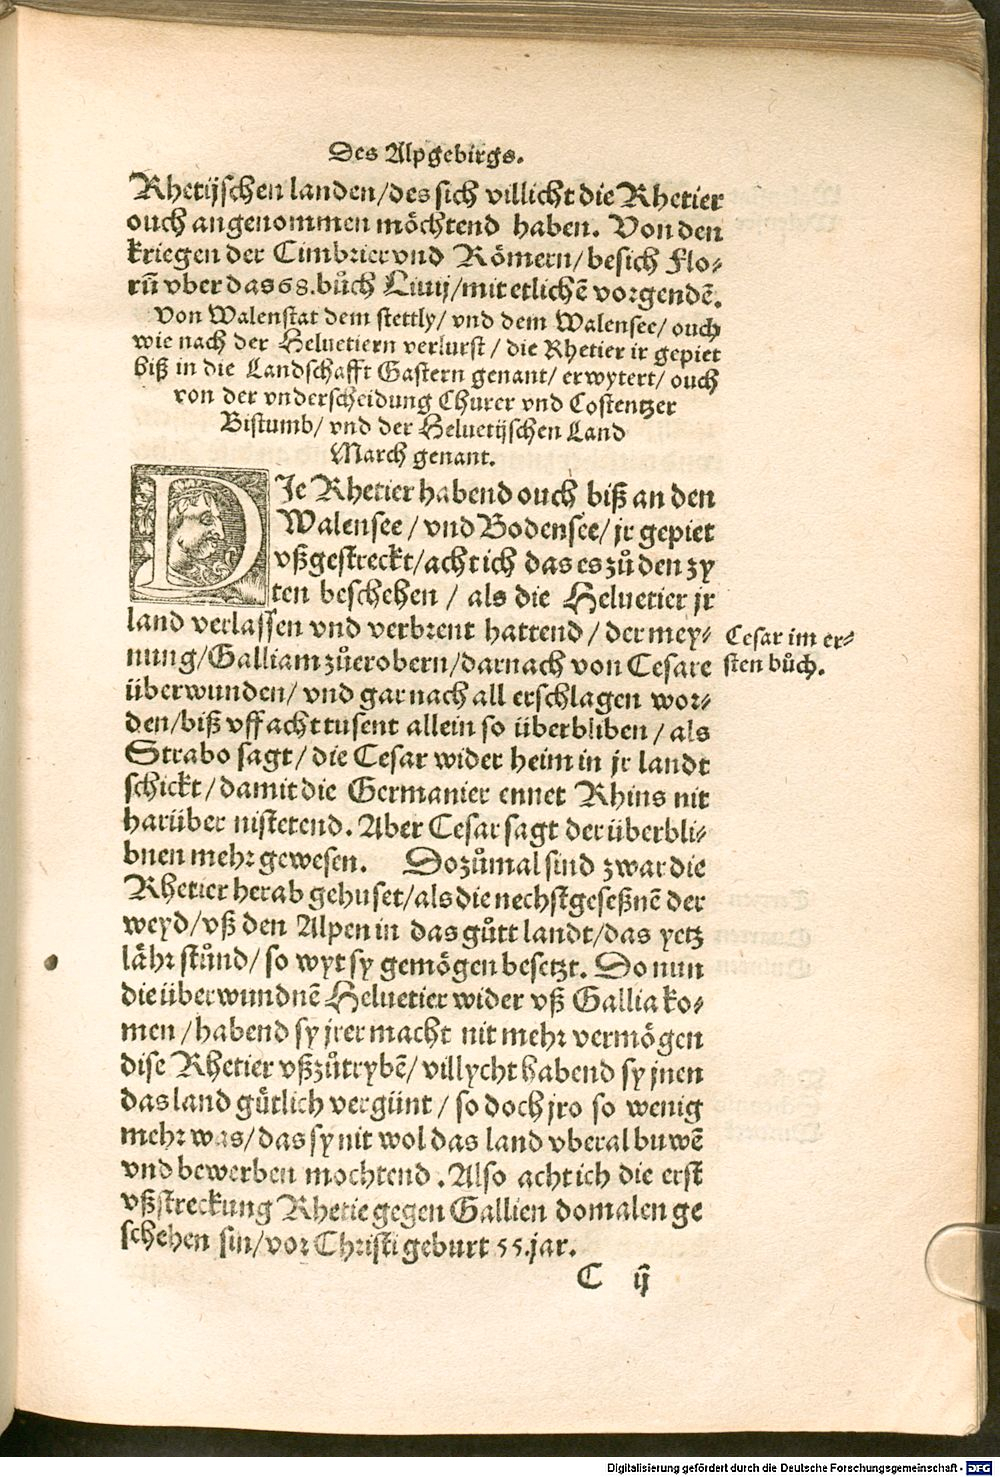 Des Alpgebirgs.
Rhetijschen landen/des sich villicht die Rhetier
ouch angenommen möchtend haben. Von den
kriegen der Cimbrier vnd Römern/besich Flo-
rū vber das 68.bůch Liuij/mit etlichē vorgendē.
Von Walenstat dem stettly/ vnd dem Walensee/ ouch
wie nach der Heluetiern verlurst / die Rhetier ir gepiet
biß in die Landschafft Gastern genant/ erwytert/ ouch
von der vnderscheidung Churer vnd Costentzer
Bistumb/ vnd der Heluetijschen Land
March genant.
DIe Rhetier habend ouch biß an den
Walensee/ vnd Bodensee/ jr gepiet
vßgestreckt/acht ich das es zů den zy
ten beschehen / als die Heluetier jr
land verlassen vnd verbrent hattend / der mey-
nung/Galliam zůerobern/darnach von Cesare
überwunden/ vnd gar nach all erschlagen wor-
den/biß vff acht tusent allein so überbliben / als
Strabo sagt / die Cesar wider heim in jr landt
schickt / damit die Germanier ennet Rhins nit
harüber nistetend. Aber Cesar sagt der überbli-
bnen mehr gewesen. Dozůmal sind zwar die
Rhetier herab gehuset/als die nechstgeseßnē der
weyd/vß den Alpen in das gůtt landt/das yetz
låhr stůnd/ so wyt sy gemögen besetzt. Do nun
die überwundnē Heluetier wider vß Gallia ko-
men /habend sy jrer macht nit mehr vermögen
dise Rhetier vßzůtrybē/ villycht habend sy jnen
das land gůtlich vergünt / so doch jro so wenig
mehr was/das sy nit wol das land vberal buwē
vnd bewerben mochtend . Also acht ich die erst
vßstreckung Rhetie gegen Gallien domalen ge
schehen sin/vor Christi geburt 55.jar.
Cesar im er-
sten bůch.
C ij
Digitalisierung gefördert durch die Deutsche Forschungsgemeinschaft - DFG